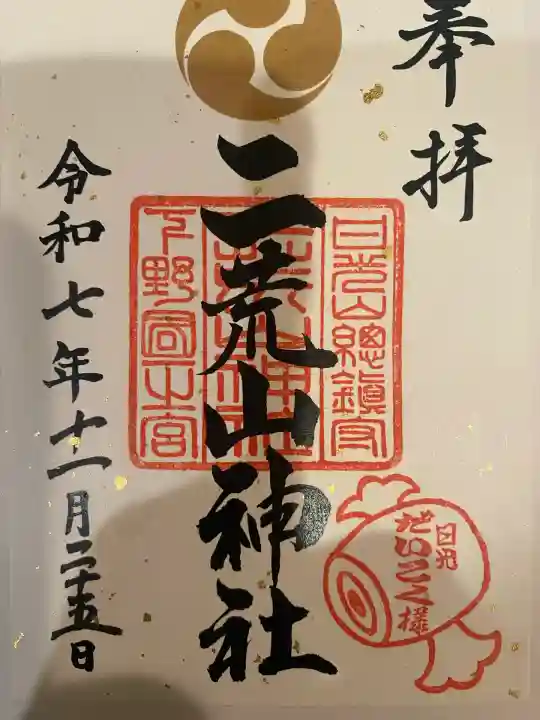 奉拝
日光山總鎮守
二荒山神社
二荒山神社
下野国一之宮
日光
だいこく様
令和七年十一月二十五日